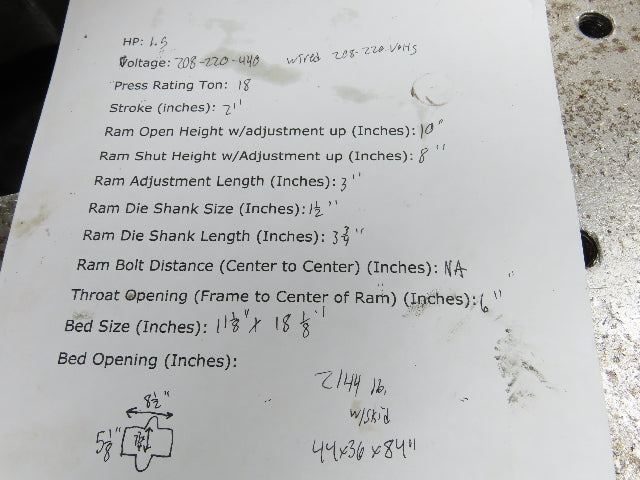 HP: 1.5
Voltage: 208-220-440 wired 208-220 Volts
Press Rating Ton: 18
Stroke (inches): 2"
Ram Open Height w/adjustment up (Inches): 10"
Ram Shut Height w/Adjustment up (Inches): 8"
Ram Adjustment Length (Inches): 3"
Ram Die Shank Size (Inches): 1½"
Ram Die Shank Length (Inches): 3¾"
Ram Bolt Distance (Center to Center) (Inches): NA
Throat Opening (Frame to Center of Ram) (Inches): 6"
Bed Size (Inches): 11⅛" x 18⅛"
Bed Opening (Inches):
2144 lb.
8½"
w/skid
5⅛"
44x36x84"